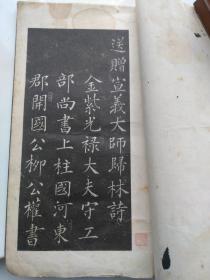 送贈宣義大師歸林詩
金紫光祿大夫守工
部尚書上柱國河東
郡開國公柳公權書